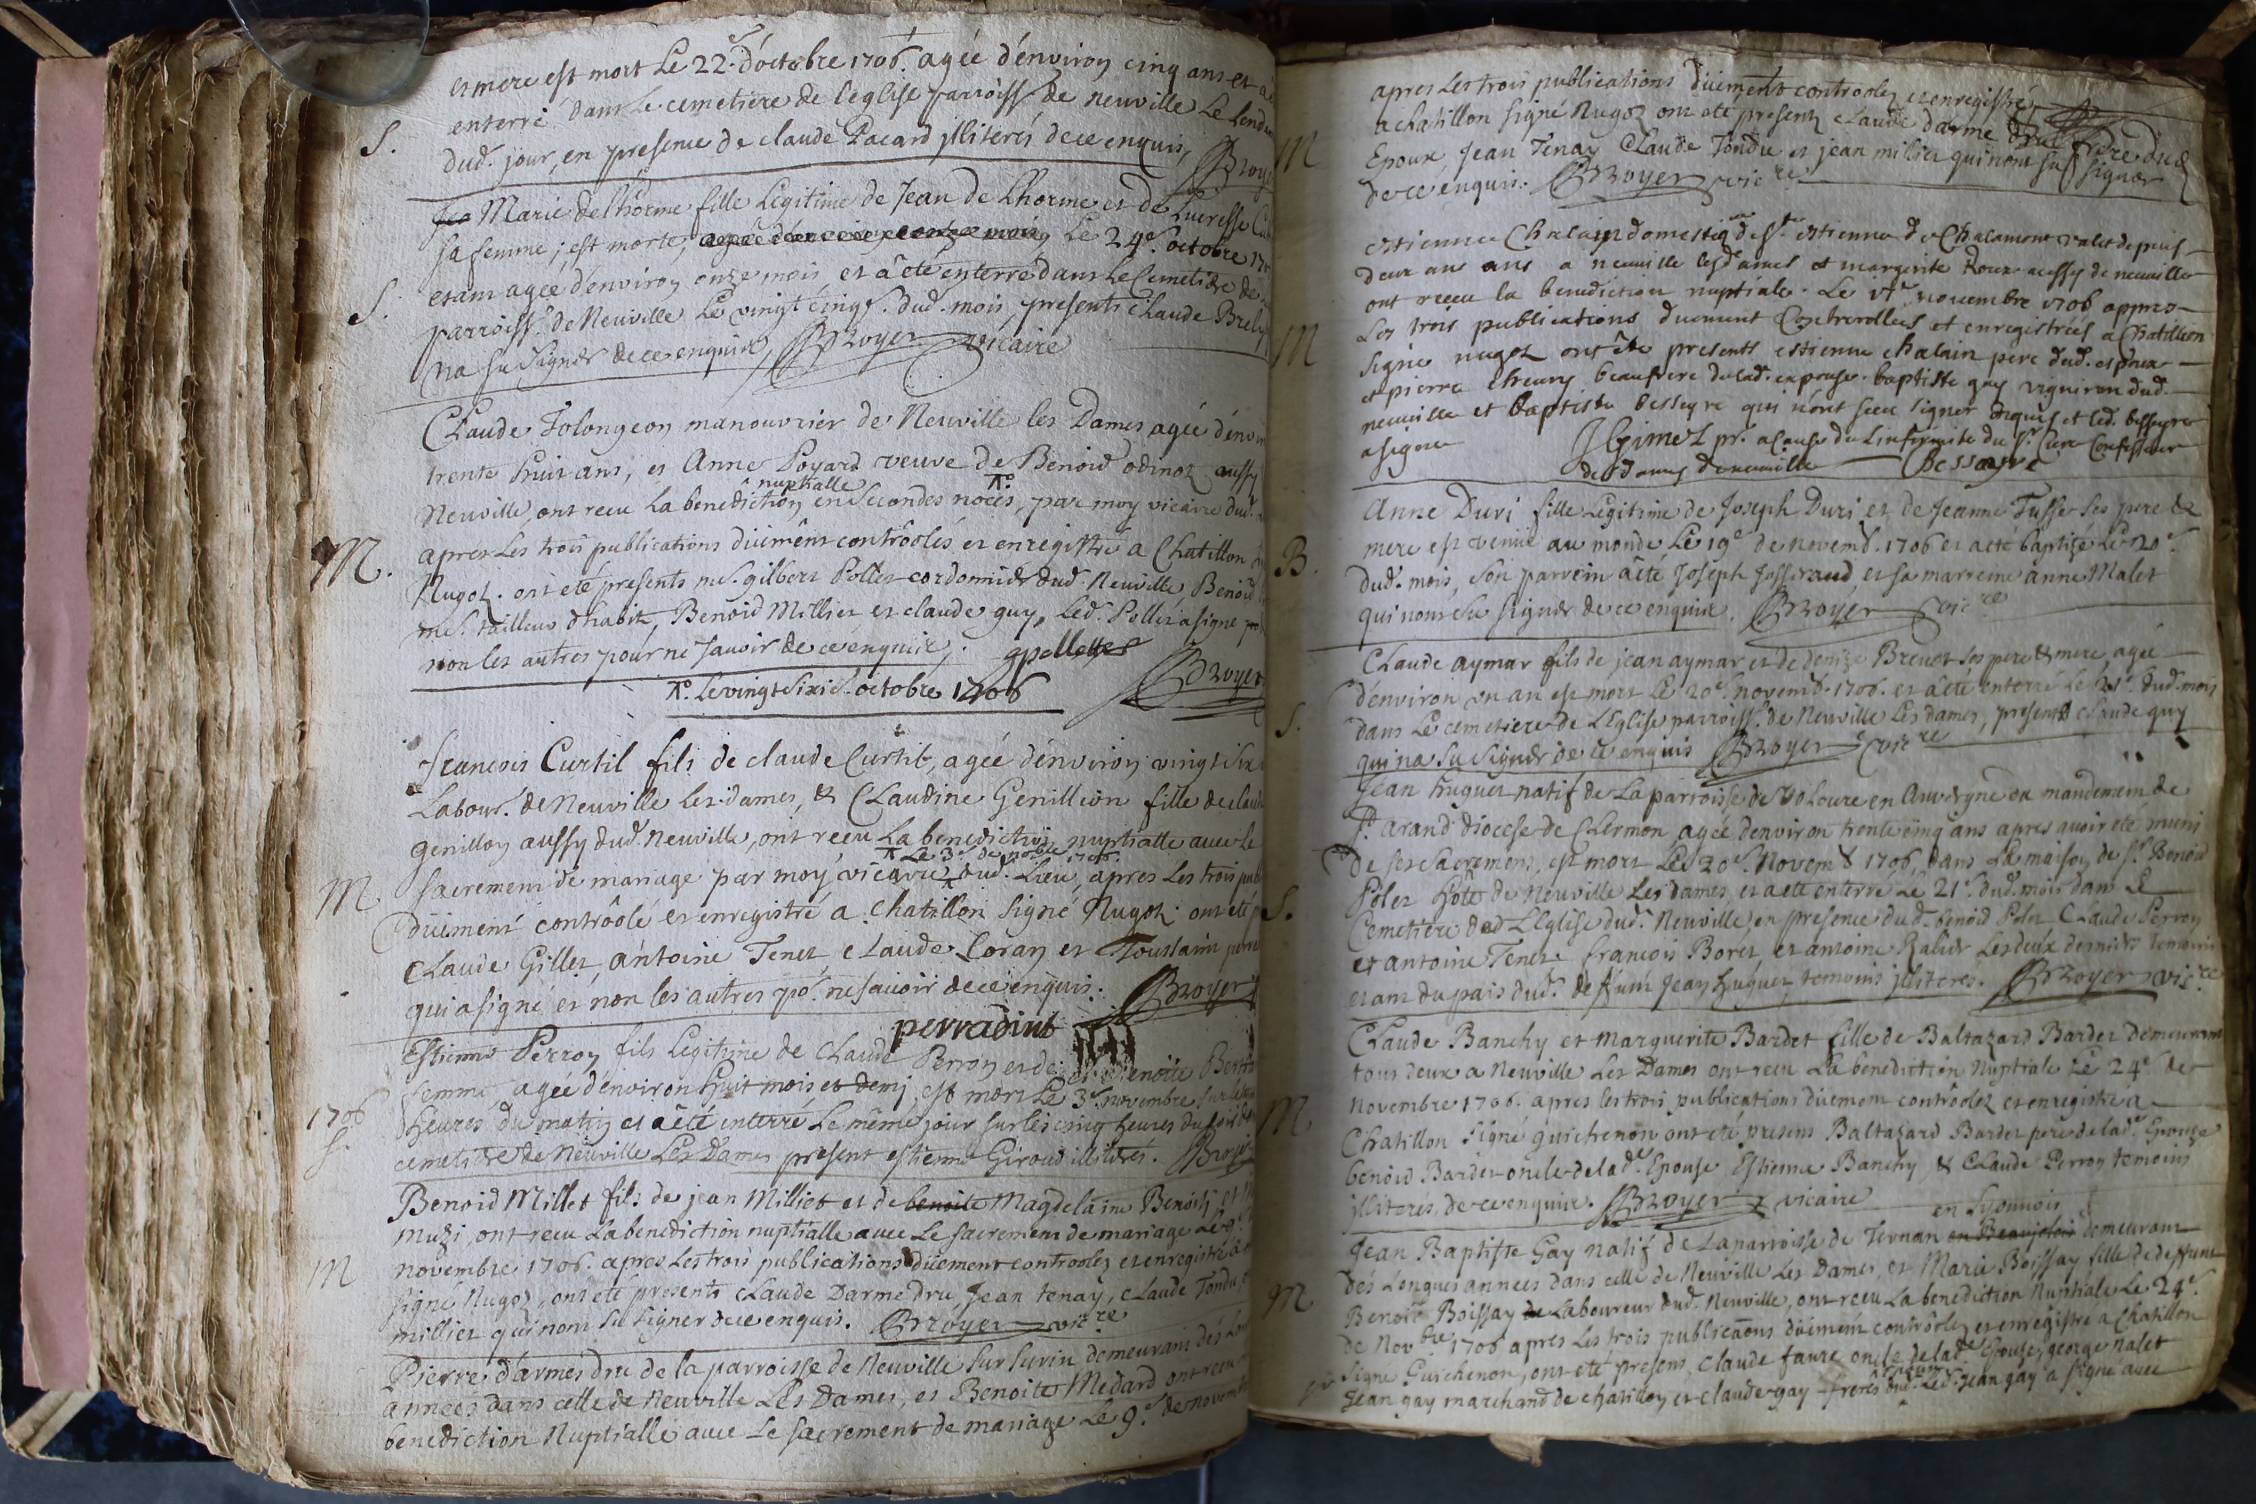 et mere est mort Le 22e d'octobre 1706. agée d'environ cinq ans et a
enterré dans Le cemetiere de l'eglise parroiss. de neuville Le lende
S.
dud. jour, en presence de claude Pacard jlliterés de ce enquis, Broye
Marie delhorme fille Legitime de Jean de Lhorme et de Lucresse
sa femme, est morte, Le 24e octobre 17
S.
etant agée d'environ onze mois et a été enterré dans Le Cemetiere de
parroiss. de Neuville Le vingt cinqe. dud. mois, presents Claude Brely
na su signer de ce enquis, Broyer vicaire
Claude Tolongeon manouvrier de Neuville les Dames agée d'envi
trente huit ans, et Anne Poyard veuve de Benoid odinot aussy
nuptialle
Neuville, ont receu La benediction en secondes noces, par moy vicaire dud.
M.
apres Les trois publications düement contrôolés, et enregistré a Chatillon
Nugoz. ont eté presents me. gilbert Pollet cordonnier dud. Neuville Benoid
me. tailleur d'habit, Benoid Millier et claude guy, Led. Pollet a signé
non les autres pour ne savoir de ce enquis,. gpollette
Broyer
Le vingt Sixie. octobre 1706
francois Curtil fils de claude Curtil, agée d'environ vingt six
Labour. de Neuville les dames, & Claudine Genillion fille de claude
genillon aussy dud. Neuville, ont receu La benediction nuptialle avec le
Le 3e de nobre 1706.
M
sacrement de mariage par moy vicaire dud. Lieu, apres Les trois publ
düement contrôolé et enregistré a Chatillon signé Nugoz. ont eté
Claude Gillet, antoine Tenet claude Coran et Toussaint
qui a signé et non les autres po. ne savoir de ce enquis. Broyer
perradint
Estienne Perron fils Legitime de Claude Perron et de Benoite
femme, agée d'environ huit mois et demi, est mort Le 3e novembre sur les
1706
heures du matin et a été enterré Le même jour sur les cinq heures du soir
S.
cemetiere de Neuville Les Dames present estienne Giroud illiterés. Broye
Benoid Millet fils de jean Milliet et de benoite Magdelaine Benoist et
Muzi, ont receu La benediction nuptialle avec Le sacrement de mariage Le 9e
M
novembre 1706. apres Les trois publications düement controolez et enregistré a
signé Nugoz, ont eté presents Claude Darmedru, Jean tenay, claude Tondu,
millier qui nont su signer de ce enquis. Broyer vicre
Pierre d'armedru de la parroisse de Neuville sur surin demeurant des Lon
années dans celle de Neuville Les Dames, et Benoite Medard ont receu
benediction Nuptialle avec Le sacrement de mariage Le 9e de novemb
apres Les trois publications düement controolez et enregistré
a chatillon signé Nugoz ont eté presentz claude darme dru frere dud.
M
Epoux Jean Tenay Claude Tondu et jean milier qui nont su signer
de ce enquis. Broyer vicre
estienne Chalain domestiq de Sr. estienne de Chalamont valet depuis
deux ans a neuville les dames et margerite Roux aussy de neuville
ont receu la benediction nuptiale. Le novembre 1706 appres
M
Les trois publications duement Controrollees et enregistrées a Chatillon
signé nugoz ont été presents estienne chalain pere dud. espoux
et pierre beaufrere de lad. expouse. baptiste gay vigniron dud.
neuville et baptiste besseyre qui n'ont sceu signer enquis et led. besseyre
a signé JGimel pr. a cause de Linfirmité du Sr Cure Confesseur
des dames de neuville Bessayre
Anne Duri fille Legitime de Joseph Duri et de Jeanne Tusse ses pere &
mere est venüe au monde Le 19e de novemb. 1706 et a eté baptizé Le 20e
B.
dud. mois, son parrein a eté Joseph Josseraud et sa marreine anne Malet
qui nont su signer de ce enquis. Broyer vicre
Claude aymar fils de jean aymar et de denize Brevet ses pere & mere, agée
d'environ un an est mort Le 20e novemb. 1706. et a été enterré Le 21e dud. mois
S.
dans Le cemetiere de L'eglise parroiss. de Neuville les dames, present claude guy
qui na su signer de ce enquis Broyer vicre
Jean huguet natif de La parroisse de Voloure en Auvergne du mandement de
St. arand diocese de Clermon agée d'environ trente cinq ans apres avoir été muni
de ses sacremens, est mort Le 20e Novemb 1706, dans La maison de Sr. Benoid
Polet hôte de Neuville Les dames, et a eté enterré Le 21e. dud. mois dans Le
S.
Cemetiere de L'Eglise dud. Neuville, en presence dud. benoid Polet Claude Perron
et antoine Tenet. francois Boret, et antoine Ralier Les deux derniers temoins
etant du pais dud. deffunt Jean huguet, temoins jlliterés. Broyer vicre
Claude Banchy et Marguerite Bardet fille de Baltazard Bardet demeurant
tous deux a Neuville Les Dames ont receu La benediction Nuptiale Le 24e de
novembre 1706. apres les trois publications düement contrôolez et enregistré a
M
Chatillon signé guichenon ont eté presens Baltazard Bardet pere de lad. Epouze
benoid Bardet oncle de lad. Epouse Estienne Banchy & Claude Perron temoins
jlliterés, de ce enquis. Broyer vicaire
en Lyonnois
Jean Baptiste Gay natif de La parroisse de Ternan en Beaujolois demeurant
des Longues années dans celle de Neuville Les Dames, et Marie Boissay fille de deffunt
M
Benoit Boissay Laboureur dud. Neuville, ont receu La benediction Nuptiale Le 24e
de Novbre 1706 apres Les trois publicaons düement contrôolez et enregistré a Chatillon
signé Guichenon, ont eté presens, claude faure oncle de lad. Epouse, george nalet
Jean gay marchand de chatillon et claude gay freres Led. jean gay a signé avec